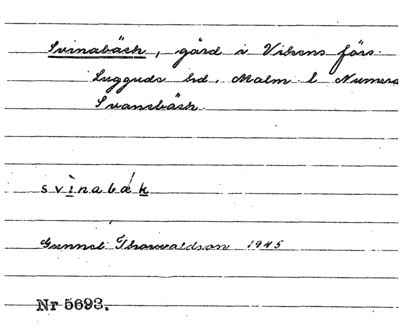 Svinabäck, gård i Vikens förs.
Luggude hd. Malm. l. Numera
Svansbäck.
svinabæk
Gunnel Thorvaldson 1945
Nr 5693.